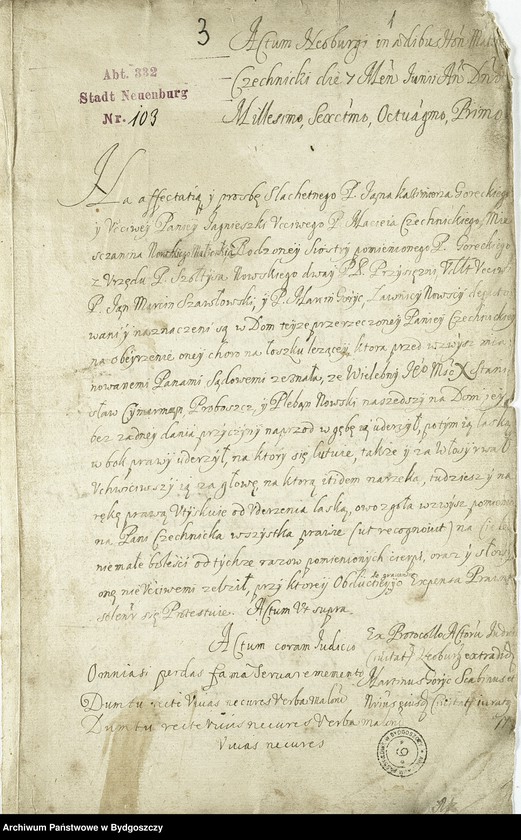 3
1
Abt. 332
Stadt Neuenburg
Nr. 103
Actum Neoburgi in ædibus
Czechnicki die 7 Men Junii An Dni
Millesimo, Sexctmo, Octuagmo, Primo
Na affectatią y prosbę Slachetnego P. Jana Kazimierza Goreckiego
y Vcciwey Paniey Jagnieszki Vcciwego P. Macieia Czechnickiego, Mie
sczanina Nowskiego Małżonki Rodzoney Siostry pomienionego P. Goreckiego
z Vrzędu P. Szołtysa Nowskiego dway P.P. Przysięzni
P. Jan Marcin Szawłowski, y P. Marcin Goryc, Ławnicy Nowscy
wani y naznaczeni są w Dom teyze przerzeczoney Paniey Czechnickiey
na obeyrzenie oney choro na łoszku lezącey, ktora przed wzwysz mia
nowanemi Panami Sądowemi zeznała, ze Wielebny Jeo Msc X Stani
sław Cymerman, Proboszcz, y Pleban Nowski naszedszy na Dom jey
bez zadney dania przyczyny naprzod w gębę ią uderzył, potym ią laską
w bok prawy uderzył, na ktory się lutuie, takze y za Włosy rwał
Vchwiciwszy ią za głowę na ktorą itidem narzeka, tudziesz y na
rękę prawą Vtyskuie od Vderzenia laską, owo zgoła wzwysz pomieniona
na Pani Czechnicka wszystka prawie (ut recognovit) na
niemałe bolesci od tychze razow pomienionych cierpi, oraz y słowy
onę nie Vcciwemi zelził, przy ktorey Obductiey Expensa Prawne
solenr się Protestuie. Actum Vt supra.
Actum coram Judicio
Ex Protocollo Actoru
extradid
Omnia si perdas fama Servare memento
Martinus Goryc Scabinus
Dum tu recte Vivas ne cures Verba malorū
Dum tu recte Vivis ne cures Verba malorū
Vivas ne cures
6
Archiwum Państwowe w Bydgoszczy